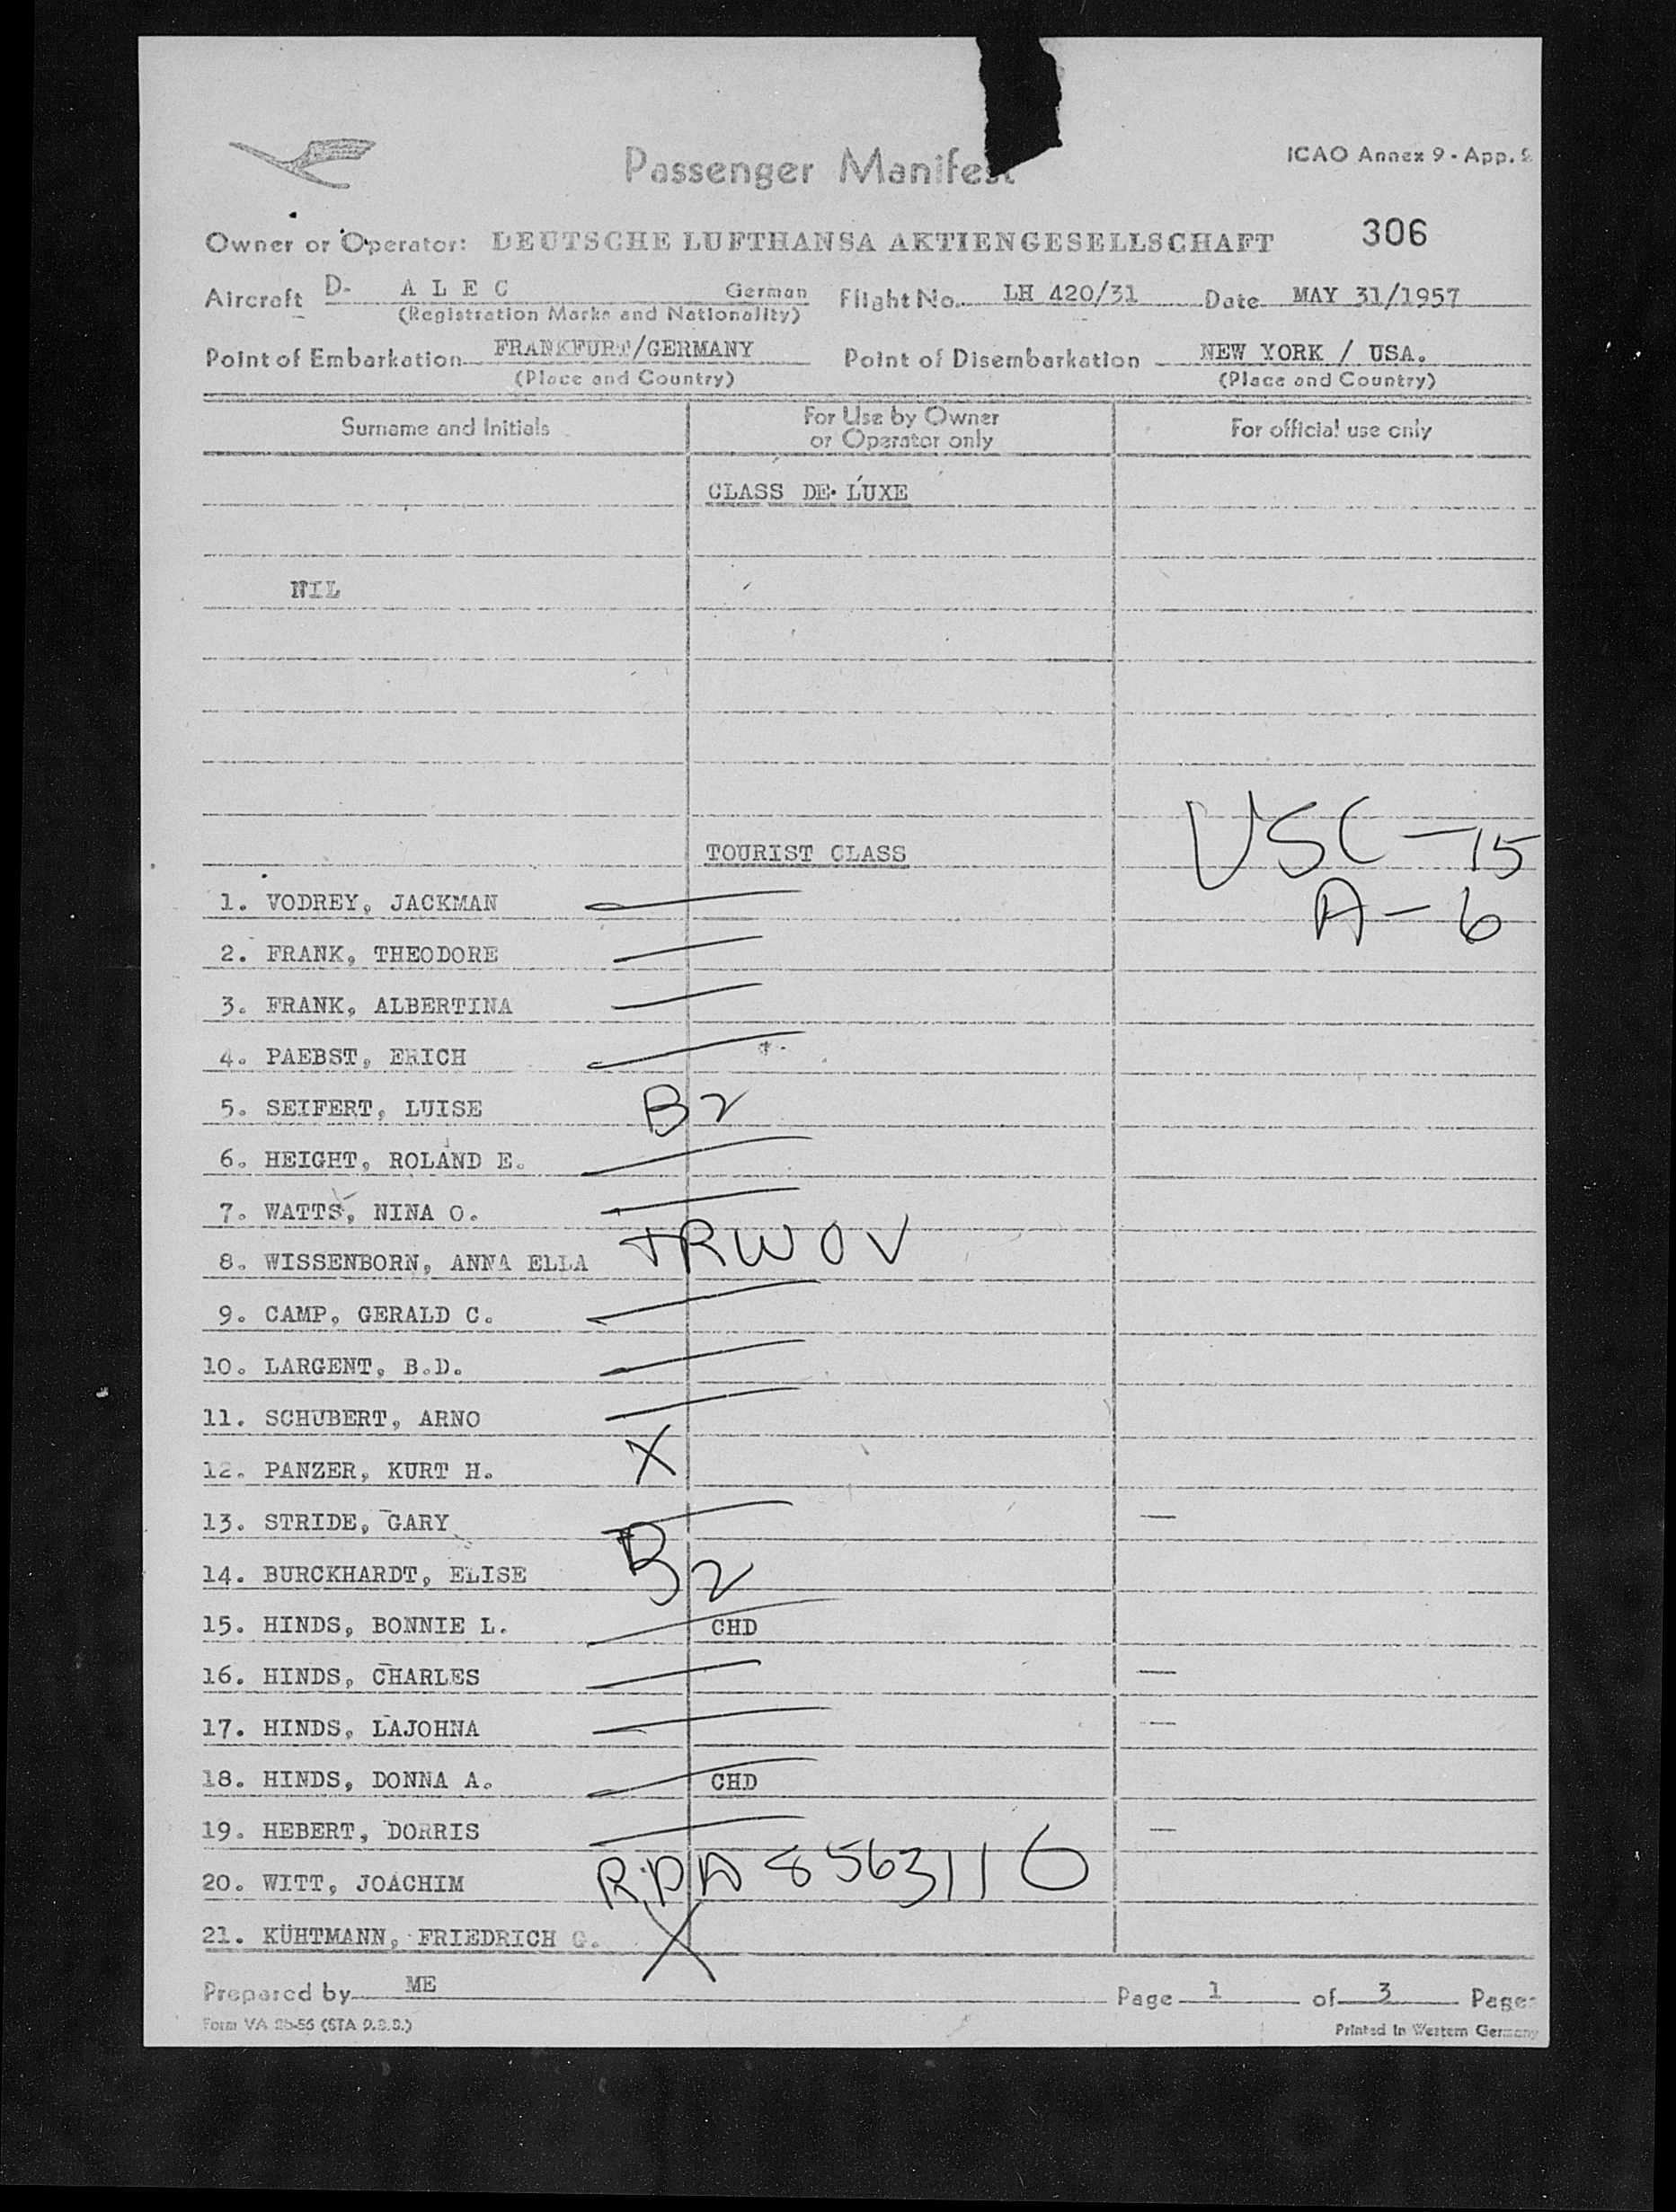 Passenger Manifest
ICAO Annex 9 - App. 2
306
Owner or Operator: DEUTSCHE LUFTHANSA AKTIENGESELLSCHAFT
Aircraft D- A L E C German Flight No. LH 420/31 Date MAY 31/1957
(Registration Marks and Nationality)
Point of Embarkation FRANKFURT/GERMANY Point of Disembarkation NEW YORK / USA.
(Place and Country) (Place and Country)
Surname and Initials For Use by Owner or Operator only For official use only
CLASS DE LUXE
NIL
USC - 15
TOURIST CLASS
A - 6
1. VODREY, JACKMAN
2. FRANK, THEODORE
3. FRANK, ALBERTINA
4. PAEBST, ERICH
5. SEIFERT, LUISE B2
6. HEIGHT, ROLAND E.
7. WATTS, NINA O.
8. WISSENBORN, ANNA ELLA TRWOV
9. CAMP, GERALD C.
10. LARGENT, B.D.
11. SCHUBERT, ARNO
12. PANZER, KURT H. X
13. STRIDE, GARY —
14. BURCKHARDT, ELISE B2
15. HINDS, BONNIE L. CHD
16. HINDS, CHARLES —
17. HINDS, LAJOHNA —
18. HINDS, DONNA A. CHD
19. HEBERT, DORRIS —
20. WITT, JOACHIM RPA 8563116
21. KÜHTMANN, FRIEDRICH G. X
Prepared by ME Page 1 of 3 Pages
Form VA 25-55 Printed in Western Germany